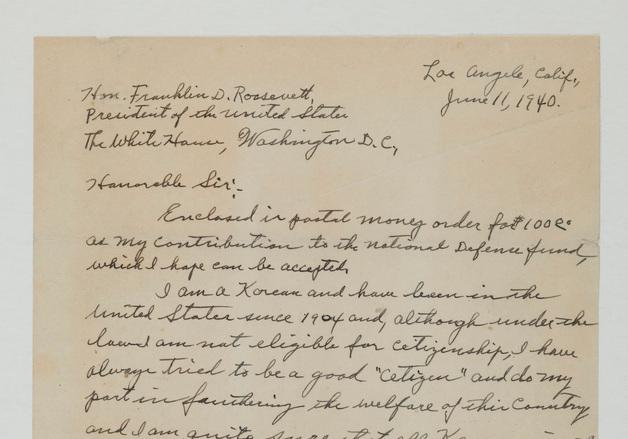 Los Angele, Calif.,
June 11, 1940.
Hon. Franklin D. Roosevelt,
President of the United States
The White House, Washington D.C,
Honorable Sir:-
Enclosed is postal money order for $100
as my contribution to the national Defense fund,
which I hope can be accepted.
I am a Korean and have been in the
United States since 1904 and, although under the
law I am not eligible for citizenship, I have
always tried to be a good "citizen" and do my
part in furthering the welfare of this Country
and I am quite sure that all